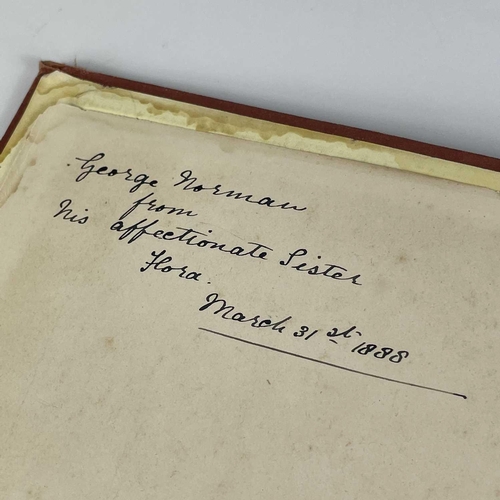 George Norman
from
his affectionate Sister
Flora.
March 31st 1888